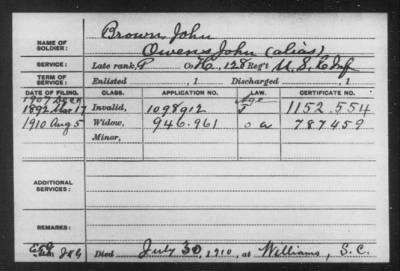 NAME OF SOLDIER:
Brown, John
Owens, John (alias)
SERVICE: Late rank, P Co. H, 128 Reg't U.S.C. Inf
TERM OF SERVICE: Enlisted , 1 Discharged , 1
DATE OF FILING. CLASS. APPLICATION NO. LAW. CERTIFICATE NO.
1907
Age
1892 Mar 17 Invalid, 1098912 F 1152.554
1910 Aug 5 Widow, 946.961 o a 787459
Minor,
ADDITIONAL SERVICES:
REMARKS:
Died July 30, 1910, at Williams, S.C.